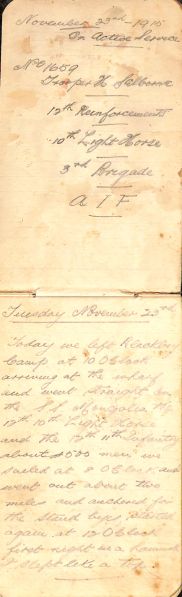 November 23rd - 1915
On Active Service
No 1659
Trooper H Selborne
12th Reinforcements
10th Light Horse
3rd Brigade
A I F
Tuesday November 23rd
Today we left Blackboy
Camp at 10 O Clock
arriving at the wharf
and went straight on
the S.S Mongolia the
12th 10th Light Horse
and the 12th 11th Infantry
about 500 men we
sailed at 8 O Clock and
went out about two
miles and anchored for
the started
again at 12 O Clock
first night in a hammock
I slept like a top.